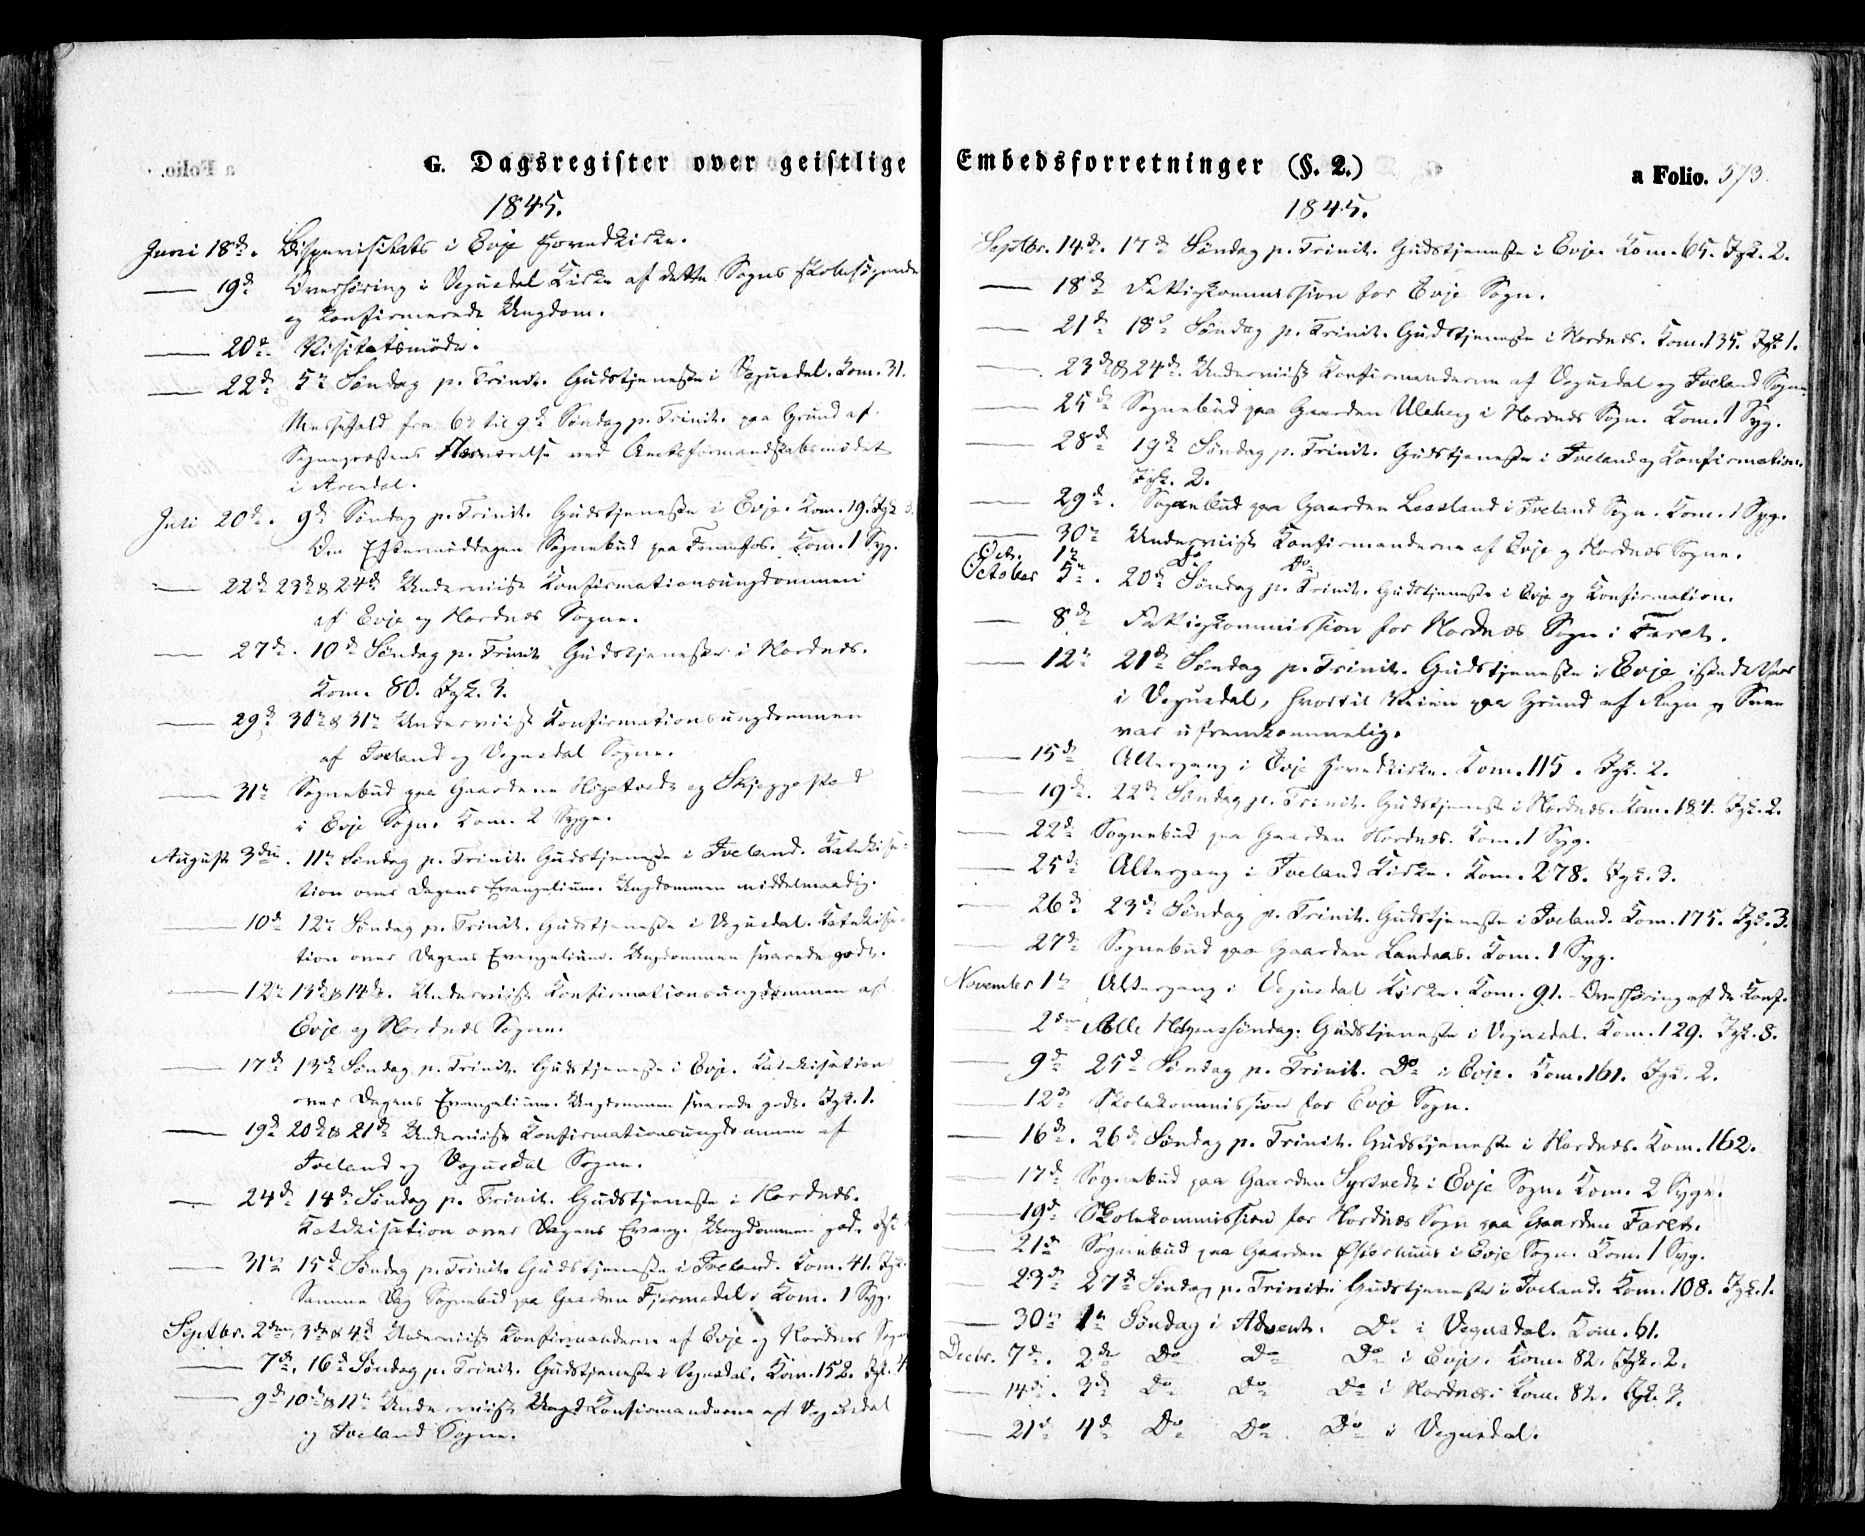 G. Dagsregister over geistlige
1845.
Juni 18de. Bispevisitats i Evje Hovedkirke.
— 19de Overhøring i Vegusdal Kirke af dette Sogns skolesøgende
og konfirmerede Ungdom.
— 20de. Visitatsmøde.
— 22de 5te Søndag p. Trinit. Gudstjeneste i Vegusdal. Kom. 31.
Messefald fra 6te til 9de Søndag p. Trinit. paa Grund af
Sognepræstens Nærværelse ved Amtsformandskabsmødet
i Arendal.
Juli 20de. 9de Søndag p. Trinit. Gudstjeneste i Evje. Kom. 19. Jgk. 3.
Om Eftermiddagen Sognebud paa Fennefos. Kom. 1 Syg.
— 22de 23de & 24de Underviist Konfirmationsungdommen
af Evje og Hordnes Sogne.
— 27de. 10de Søndag p. Trinit. Gudstjeneste i Hordnes.
Kom. 80. Jgk. 3.
— 29de 30te & 31te Underviist Konfirmationsungdommen
af Iveland og Vegusdal Sogne.
— 31te Sognebud paa Gaardene Högetvedt og Skjeggestad
i Evje Sogn. Kom. 2 Syge.
August 3die. 11te Søndag p. Trinit. Gudstjeneste i Iveland. Katekisa-
tion over Dagens Evangelium. Ungdommen middelmaadig.
— 10de 12te Søndag p. Trinit. Gudstjeneste i Vegusdal. Katekisa-
tion over Dagens Evangelium. Ungdommen svarede godt.
— 12te 13de & 14de. Underviist Konfirmationsungdommen af
Evje og Hordnes Sogne.
— 17de 13de Søndag p. Trinit. Gudstjeneste i Evje. Katekisation
over Dagens Evangelium. Ungdommen svarede godt. Jgk. 1.
— 19de 20de & 21de Underviist Konfirmationsungdommen af
Iveland og Vegusdal Sogne.
— 24de 14de Søndag p. Trinit. Gudstjeneste i Hordnes.
Katekisation over Dagens Evang. Ungdommen god.
— 31te 15de Søndag p. Trinit. Gudstjeneste i Iveland. Kom. 41. Jgk.
Samme Dag Sognebud paa Gaarden Fjermedal. Kom. 1 Syg.
Septbr. 2den, 3die & 4de Underviist Konfirmanderne af Evje og Hordnes Sogne
— 7de. 16de Søndag p. Trinit. Gudstjeneste i Vegusdal. Kom. 152. Jgk. 4
— 9de 10de & 11te Underviist Konfirmanderne af Vegusdal
og Iveland Sogne.
Embedsforretninger (§. 2.)
a Folio. 573.
1845.
Septbr. 14de. 17de Søndag p. Trinit. Gudstjeneste i Evje. Kom. 65. Jgk. 2.
— 18de Fattigkommission for Evje Sogn.
— 21de 18de Søndag p. Trinit. Gudstjeneste i Hordnes. Kom. 135. Jgk. 1.
— 23de & 24de. Underviist Konfirmanderne af Vegusdal og Iveland Sogne.
— 25de Sognebud paa Gaarden Uleberg i Hordnes Sogn. Kom. 1 Syg.
— 28de 19de Søndag p. Trinit. Gudstjeneste i Iveland og Konfirmation.
Jgk. 2.
— 29de. Sognebud paa Gaarden Leesland i Iveland Sogn. Kom. 1 Syg.
— 30te Underviist Konfirmanderne af Evje og Hordnes Sogne.
Octr. 1te Do Do
October 5te. 20de Søndag p. Trinit. Gudstjeneste i Evje og Konfirmation.
— 8de Fattigkommission for Hordnes Sogn i Faret.
— 12te 21de Søndag p. Trinit. Gudstjeneste i Evje istedetfor
i Vegusdal, hvortil Veien paa Grund af Regn og Snee
var ufremkommelig.
— 15de Altergang i Evje Hovedkirke. Kom. 115. Jgk. 2.
— 19de. 22de Søndag p. Trinit. Gudstjeneste i Hordnes. Kom. 184. Jgk. 2.
— 22de Sognebud paa Gaarden Hordnes. Kom. 1 Syg.
— 25de Altergang i Iveland Kirke. Kom. 278. Jgk. 3.
— 26de 23de Søndag p. Trinit. Gudstjeneste i Iveland. Kom. 175. Jgk. 3.
— 27de Sognebud paa Gaarden Landaas. Kom. 1 Syg.
November 1te Altergang i Vegusdal Kirke. Kom. 91. Overhøring af de Konf.
2den Alle Helgenssøndag. Gudstjeneste i Vegusdal. Kom. 129. Jgk. 8.
— 9de 25de Søndag p. Trinit. Do i Evje. Kom. 161. Jgk. 2.
— 12te Skolekommission for Evje Sogn.
— 16de. 26de Søndag p. Trinit. Gudstjeneste i Hordnes. Kom. 162.
— 17de Sognebud paa Gaarden Syrtvedt i Evje Sogn. Kom. 2 Syge.
— 19de Skolekommission for Hordnes Sogn paa Gaarden Faret.
— 21de Sognebud paa Gaarden Østerhuus i Evje Sogn. Kom. 1 Syg.
— 23de 27de Søndag p. Trinit. Gudstjeneste i Iveland. Kom. 108. Jgk. 1.
— 30te 1te Søndag i Advent. Do i Vegusdal. Kom. 61.
Decbr. 7de. 2den Do Do Do i Evje. Kom. 82. Jgk. 2.
— 14de. 3die Do Do Do i Hordnes. Kom. 82. Jgk. 3.
— 21de 4de Do Do Do i Vegusdal.